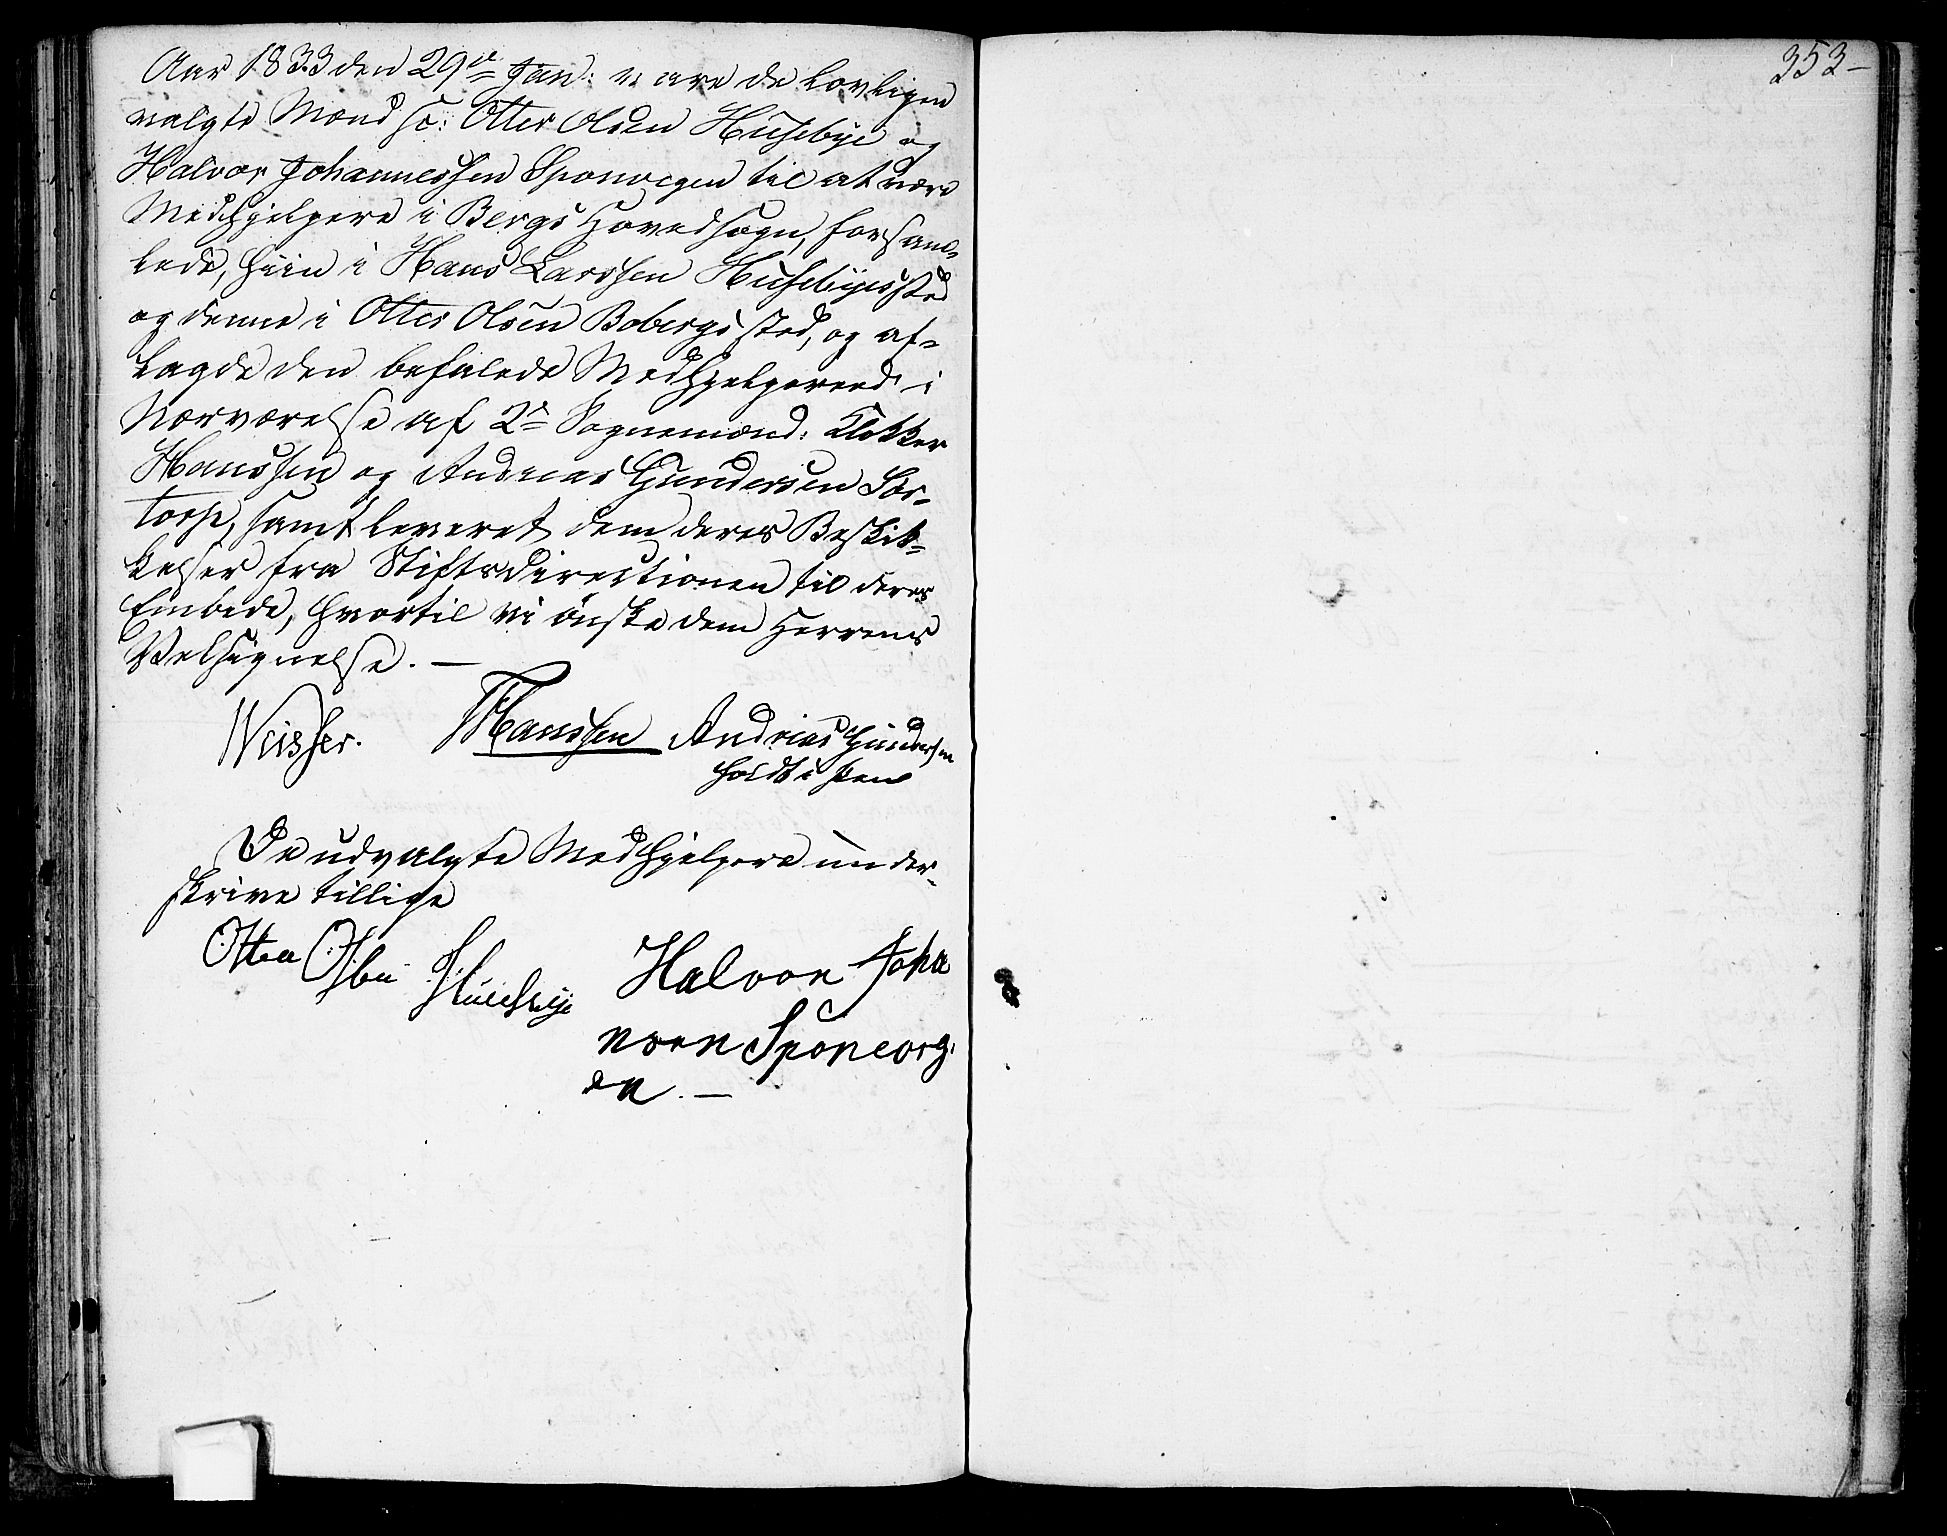 Aar 1833 den 29de Jan: vare de lovligen
valgte Mænd sc: Otter Olsen Huseby og
Halvor Johannessen Sponvegen til at være
Medhjelpere i Bergs Hovedsogn, forsam-
lede, hiin i Hans Larssen Husebyes sted
og denne i Otter Olsen Bobergs sted, og af-
lagde den befalede Medhjelpereed i
Nærværelse af 2de Sognemænd: Klokker
Hanssen og Andreas Gundersen Sør-
torp, samt leveret dem deres Beskik-
kelser fra Stiftsdirectionen til deres
Embede, hvortil vi önske dem Herrens
Velsignelse. —
Weisser. Hanssen Andrias Gundersen
holdt i Pen
De udvalgte Medhjelpere under-
skrive tillige
Otter Olsen Huusebye
Halvor Joha
nsen Sponvog
en. —
353-